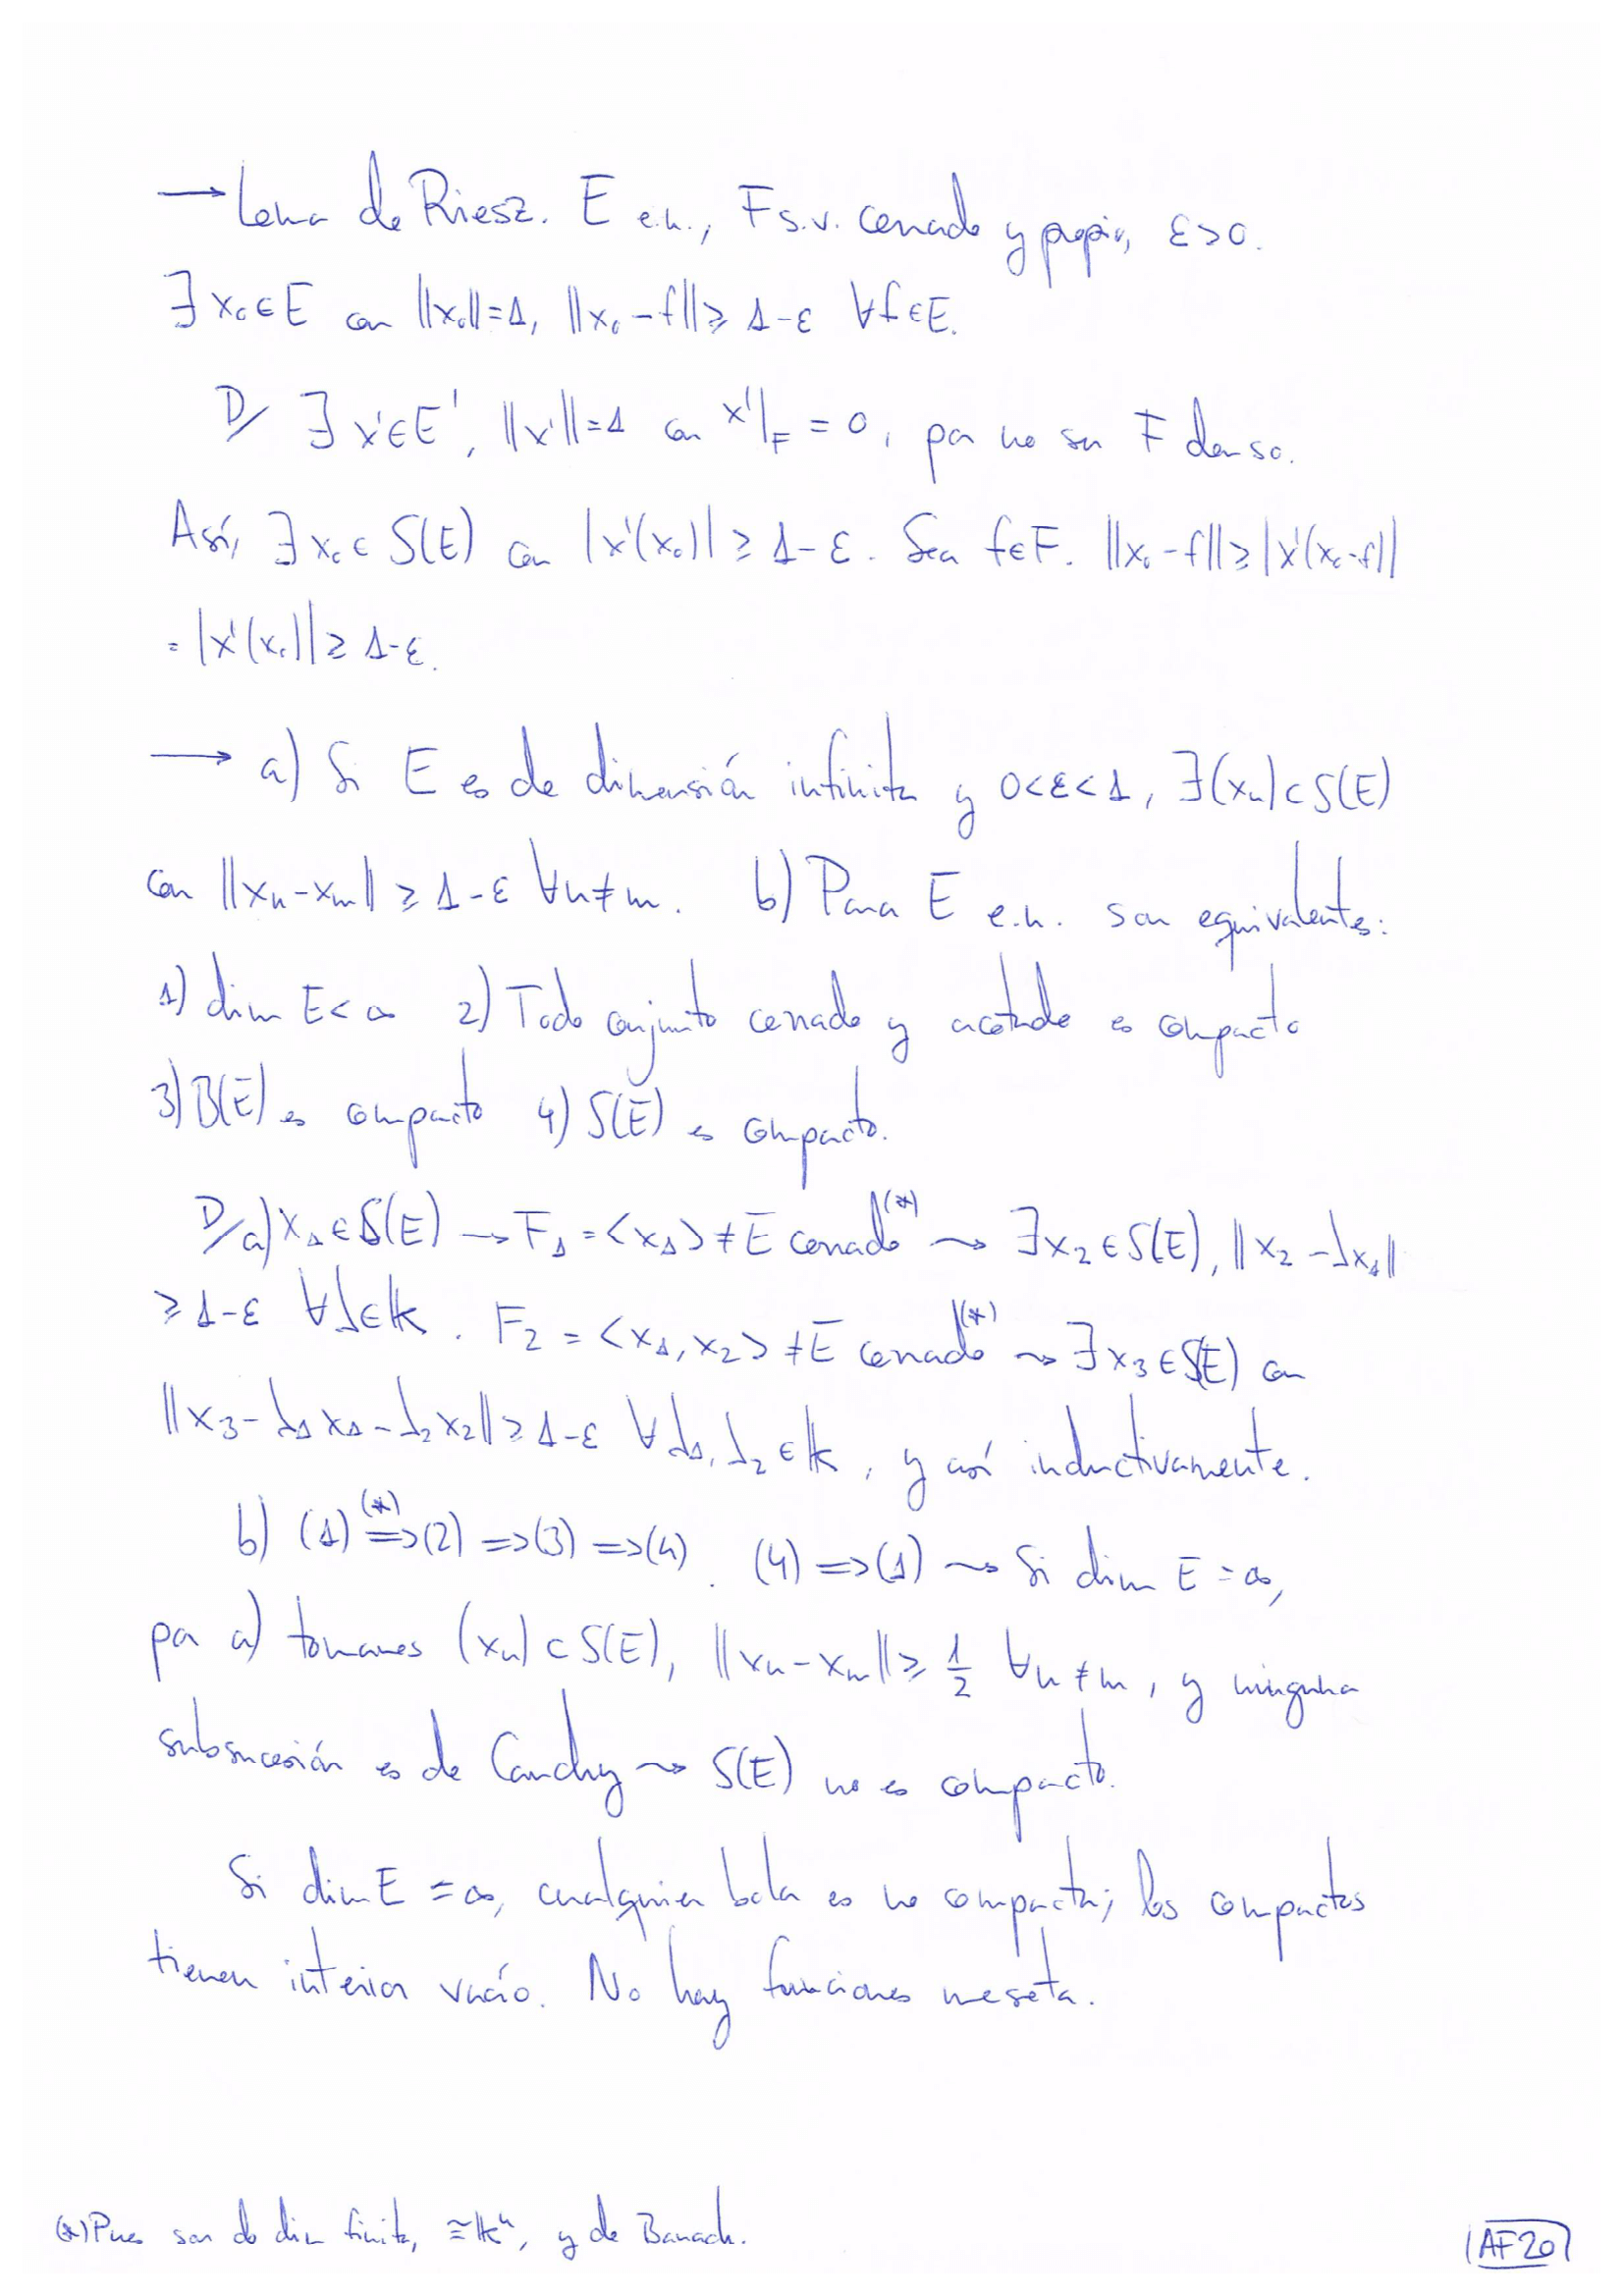 → Lema de Riesz. E e.n., F s.v. cerrado y propio, ε>0.
∃ x₀∈E con ||x₀||=1, ||x₀-f||≥ 1-ε ∀f∈E.
D/ ∃ x'∈E', ||x'||=1 con x'|_F = 0, por no ser F denso.
Así, ∃ x₀∈ S(E) con |x'(x₀)| ≥ 1-ε. Sea f∈F. ||x₀-f||≥|x'(x₀-f)|
= |x'(x₀)|≥ 1-ε.
→ a) Si E es de dimensión infinita y 0<ε<1, ∃(xₙ)⊂S(E)
con ||xₙ-xₘ|| ≥ 1-ε ∀n≠m. b) Para E e.n. son equivalentes:
1) dim E<∞ 2) Todo conjunto cerrado y acotado es compacto
3) B(E) es compacto 4) S(E) es compacto.
D/ a) x₁∈S(E) → F₁=<x₁>≠E cerrado^(*) ⇝ ∃x₂∈S(E), ||x₂-λx₁||
≥1-ε ∀λ∈𝕂. F₂=<x₁,x₂>≠E cerrado^(*) ⇝ ∃x₃∈S(E) con
||x₃-λ₁x₁-λ₂x₂||≥1-ε ∀λ₁,λ₂∈𝕂, y así inductivamente.
b) (1) ⇒^(*) (2) ⇒(3) ⇒(4). (4)⇒(1) ⇝ Si dim E=∞,
por a) tomamos (xₙ)⊂S(E), ||xₙ-xₘ||≥ 1/2 ∀n≠m, y ninguna
subsucesión es de Cauchy ⇝ S(E) no es compacto.
Si dim E=∞, cualquier bola es no compacta; los compactos
tienen interior vacío. No hay funciones meseta.
(*) Pues son de dim finita, ≅𝕂ⁿ, y de Banach.
AF20